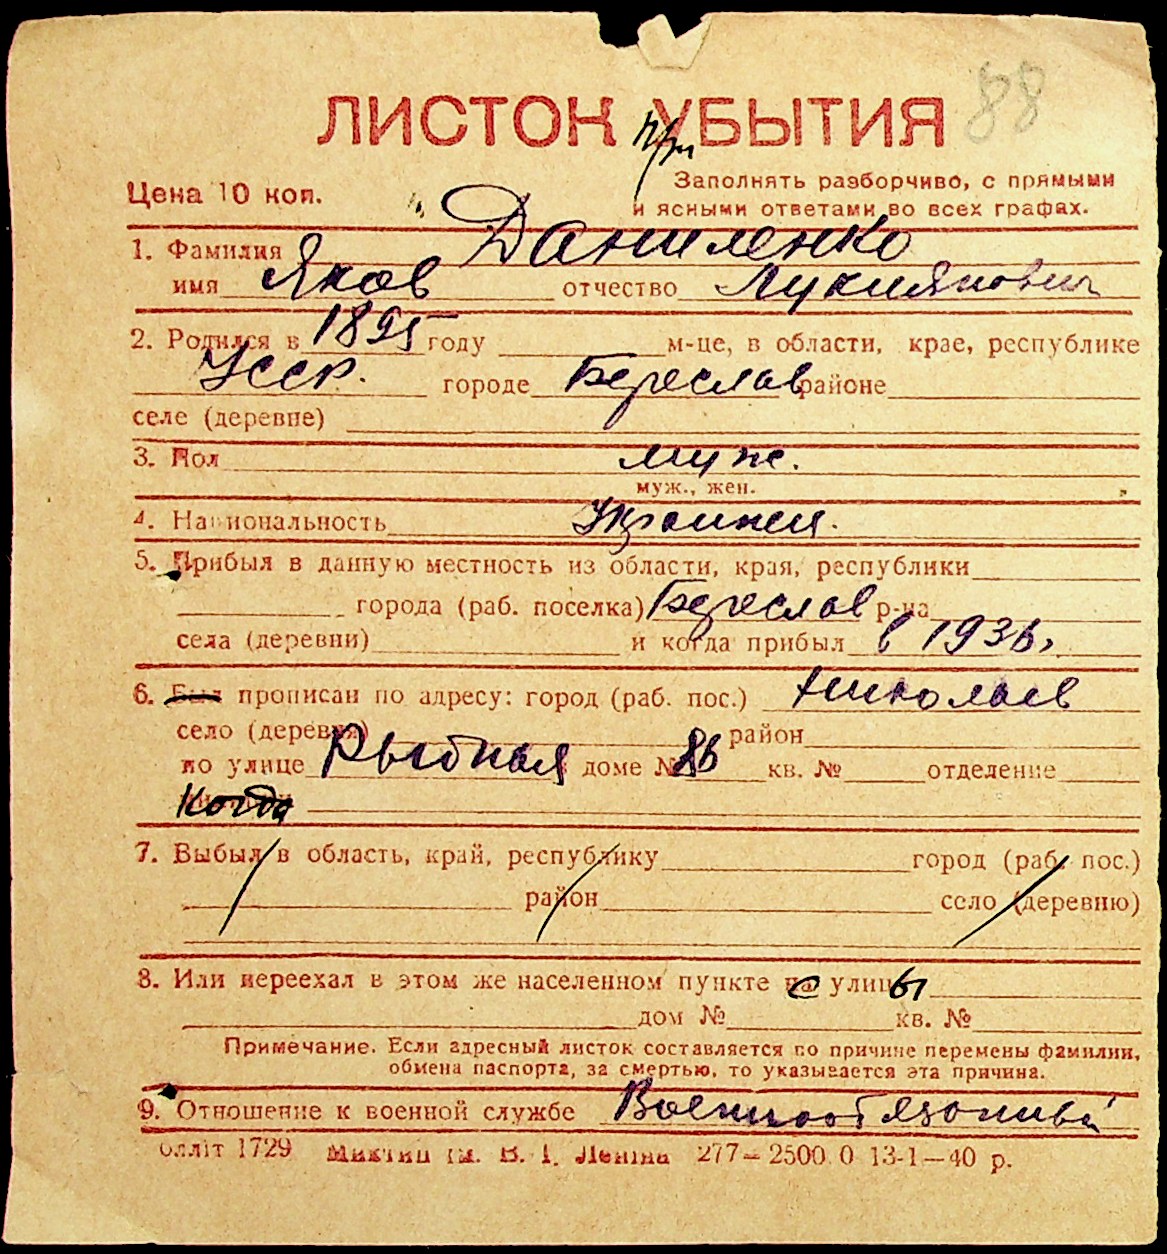 88
ЛИСТОК УБЫТИЯ
при
Цена 10 коп.
Заполнять разборчиво, с прямыми
и ясными ответами во всех графах.
1. Фамилия Даниленко
имя Яков отчество Лукиянович
2. Родился в 1895 году м-це, в области, крае, республике
Усср. городе Береслав районе
селе (деревне)
3. Пол муж.
муж., жен.
4. Национальность Украинец.
5. Прибыл в данную местность из области, края, республики
города (раб. поселка) Береслав р-на
села (деревни) и когда прибыл в 1936.
6. Был прописан по адресу: город (раб. пос.) Николаев
село (деревня) район
по улице Рыбная доме № 86 кв. № отделение
Когда
7. Выбыл в область, край, республику город (раб. пос.)
район село (деревню)
8. Или переехал в этом же населенном пункте с улицы
дом № кв. №
Примечание. Если адресный листок составляется по причине перемены фамилии,
обмена паспорта, за смертью, то указывается эта причина.
9. Отношение к военной службе Военнообязанный
олліт 1729 ім. В. І. Леніна 277—2500.0 13-1—40 р.